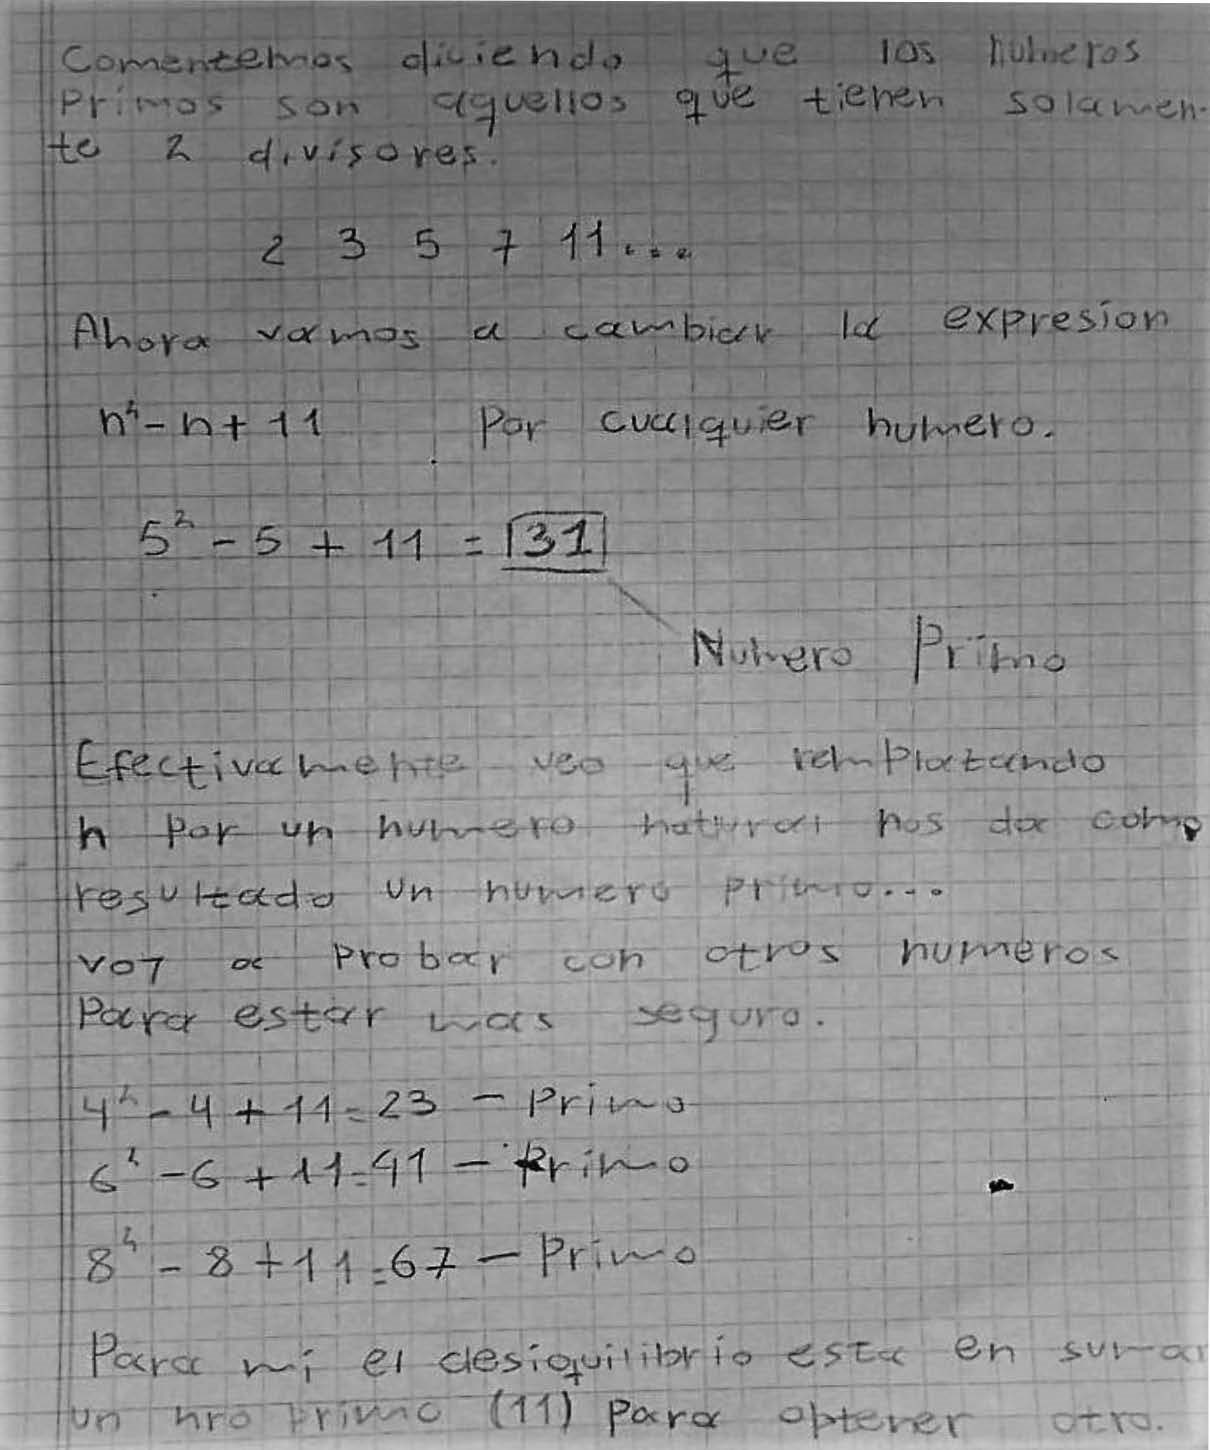 Comentemos diciendo que los numeros
Primos son aquellos que tienen solamen-
te 2 divisores.
2 3 5 7 11...
Ahora vamos a cambiar la expresion
n² - n + 11 Por cualquier numero.
5² - 5 + 11 = 31
Numero Primo
Efectivamente veo que remplazando
n Por un numero natural nos da como
resultado un numero primo...
voy a Probar con otros numeros
Para estar mas seguro.
4² - 4 + 11 = 23 - Primo
6² - 6 + 11 = 41 - Primo
8² - 8 + 11 = 67 - Primo
Para mi el desiquilibrio esta en sumar
un nro primo (11) para obtener otro.